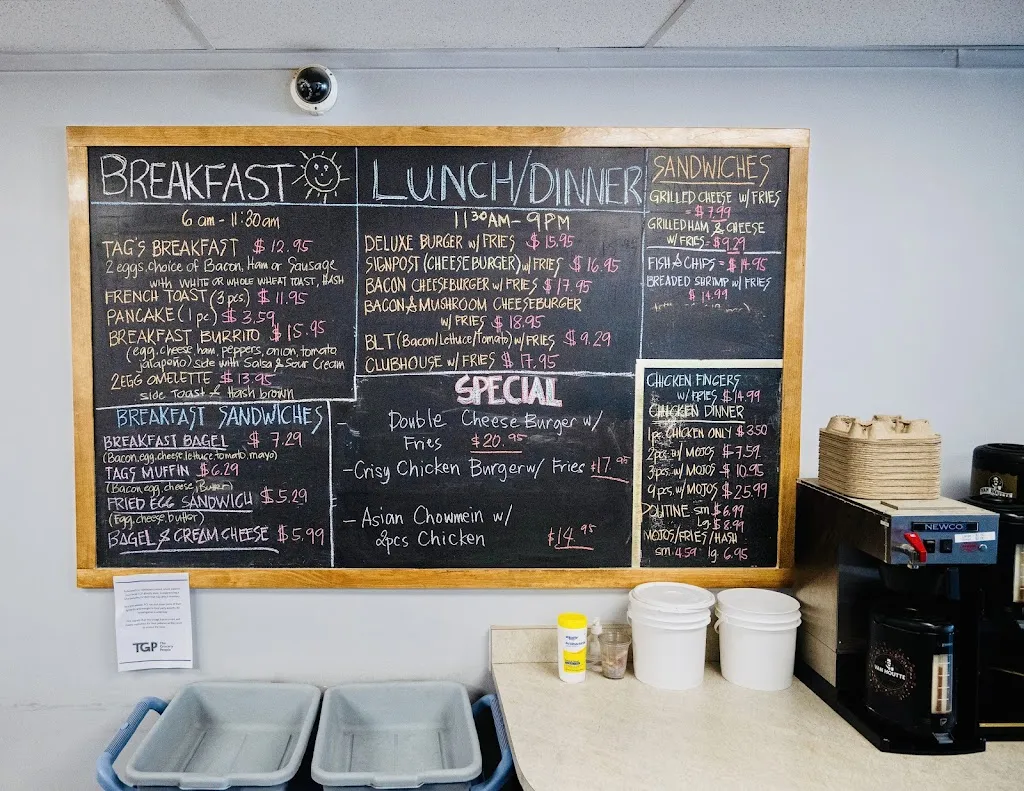 BREAKFAST
6 am - 11:30am
TAG'S BREAKFAST $12.95
2 eggs, choice of Bacon, Ham or Sausage
with WHITE OR WHOLE WHEAT TOAST, HASH
FRENCH TOAST (3 pcs) $11.95
PANCAKE (1 pc) $3.59
BREAKFAST BURRITO $15.95
(egg, cheese, ham, peppers, onion, tomato
jalapeño) side with Salsa & Sour Cream
2 EGG OMELETTE $13.95
side Toast & Hash brown
BREAKFAST SANDWICHES
BREAKFAST BAGEL $7.29
(Bacon, egg, cheese, lettuce, tomato, mayo)
TAGS MUFFIN $6.29
(Bacon, egg, cheese, Butter)
FRIED EGG SANDWICH $5.29
(Egg, cheese, butter)
BAGEL & CREAM CHEESE $5.99
LUNCH/DINNER
11 30AM - 9PM
DELUXE BURGER w/ FRIES $15.95
SIGNPOST (CHEESEBURGER) w/ FRIES $16.95
BACON CHEESEBURGER w/ FRIES $17.95
BACON & MUSHROOM CHEESEBURGER
w/ FRIES $18.95
BLT (Bacon/Lettuce/Tomato) w/ FRIES $9.29
CLUBHOUSE w/ FRIES $17.95
SPECIAL
- Double Cheese Burger w/
Fries $20.95
- Crisy Chicken Burger w/ Fries $17.95
- Asian Chowmein w/
2pcs Chicken $14.95
SANDWICHES
GRILLED CHEESE w/ FRIES
= $7.99
GRILLED HAM & CHEESE
w/ FRIES - $9.29
FISH & CHIPS = $14.95
BREADED SHRIMP w/ FRIES
$14.99
CHICKEN FINGERS
w/ FRIES $14.99
CHICKEN DINNER
1pc CHICKEN ONLY $3.50
2pcs w/ MOJOS $7.59
3pcs w/ MOJOS $10.95
9pcs w/ MOJOS $25.99
POUTINE sm $6.99
Lg $8.99
MOJOS/FRIES/HASH
sm 4.59 lg 6.95
TGP
NEWCO
VAN HOUTTE
VAN HOUTTE